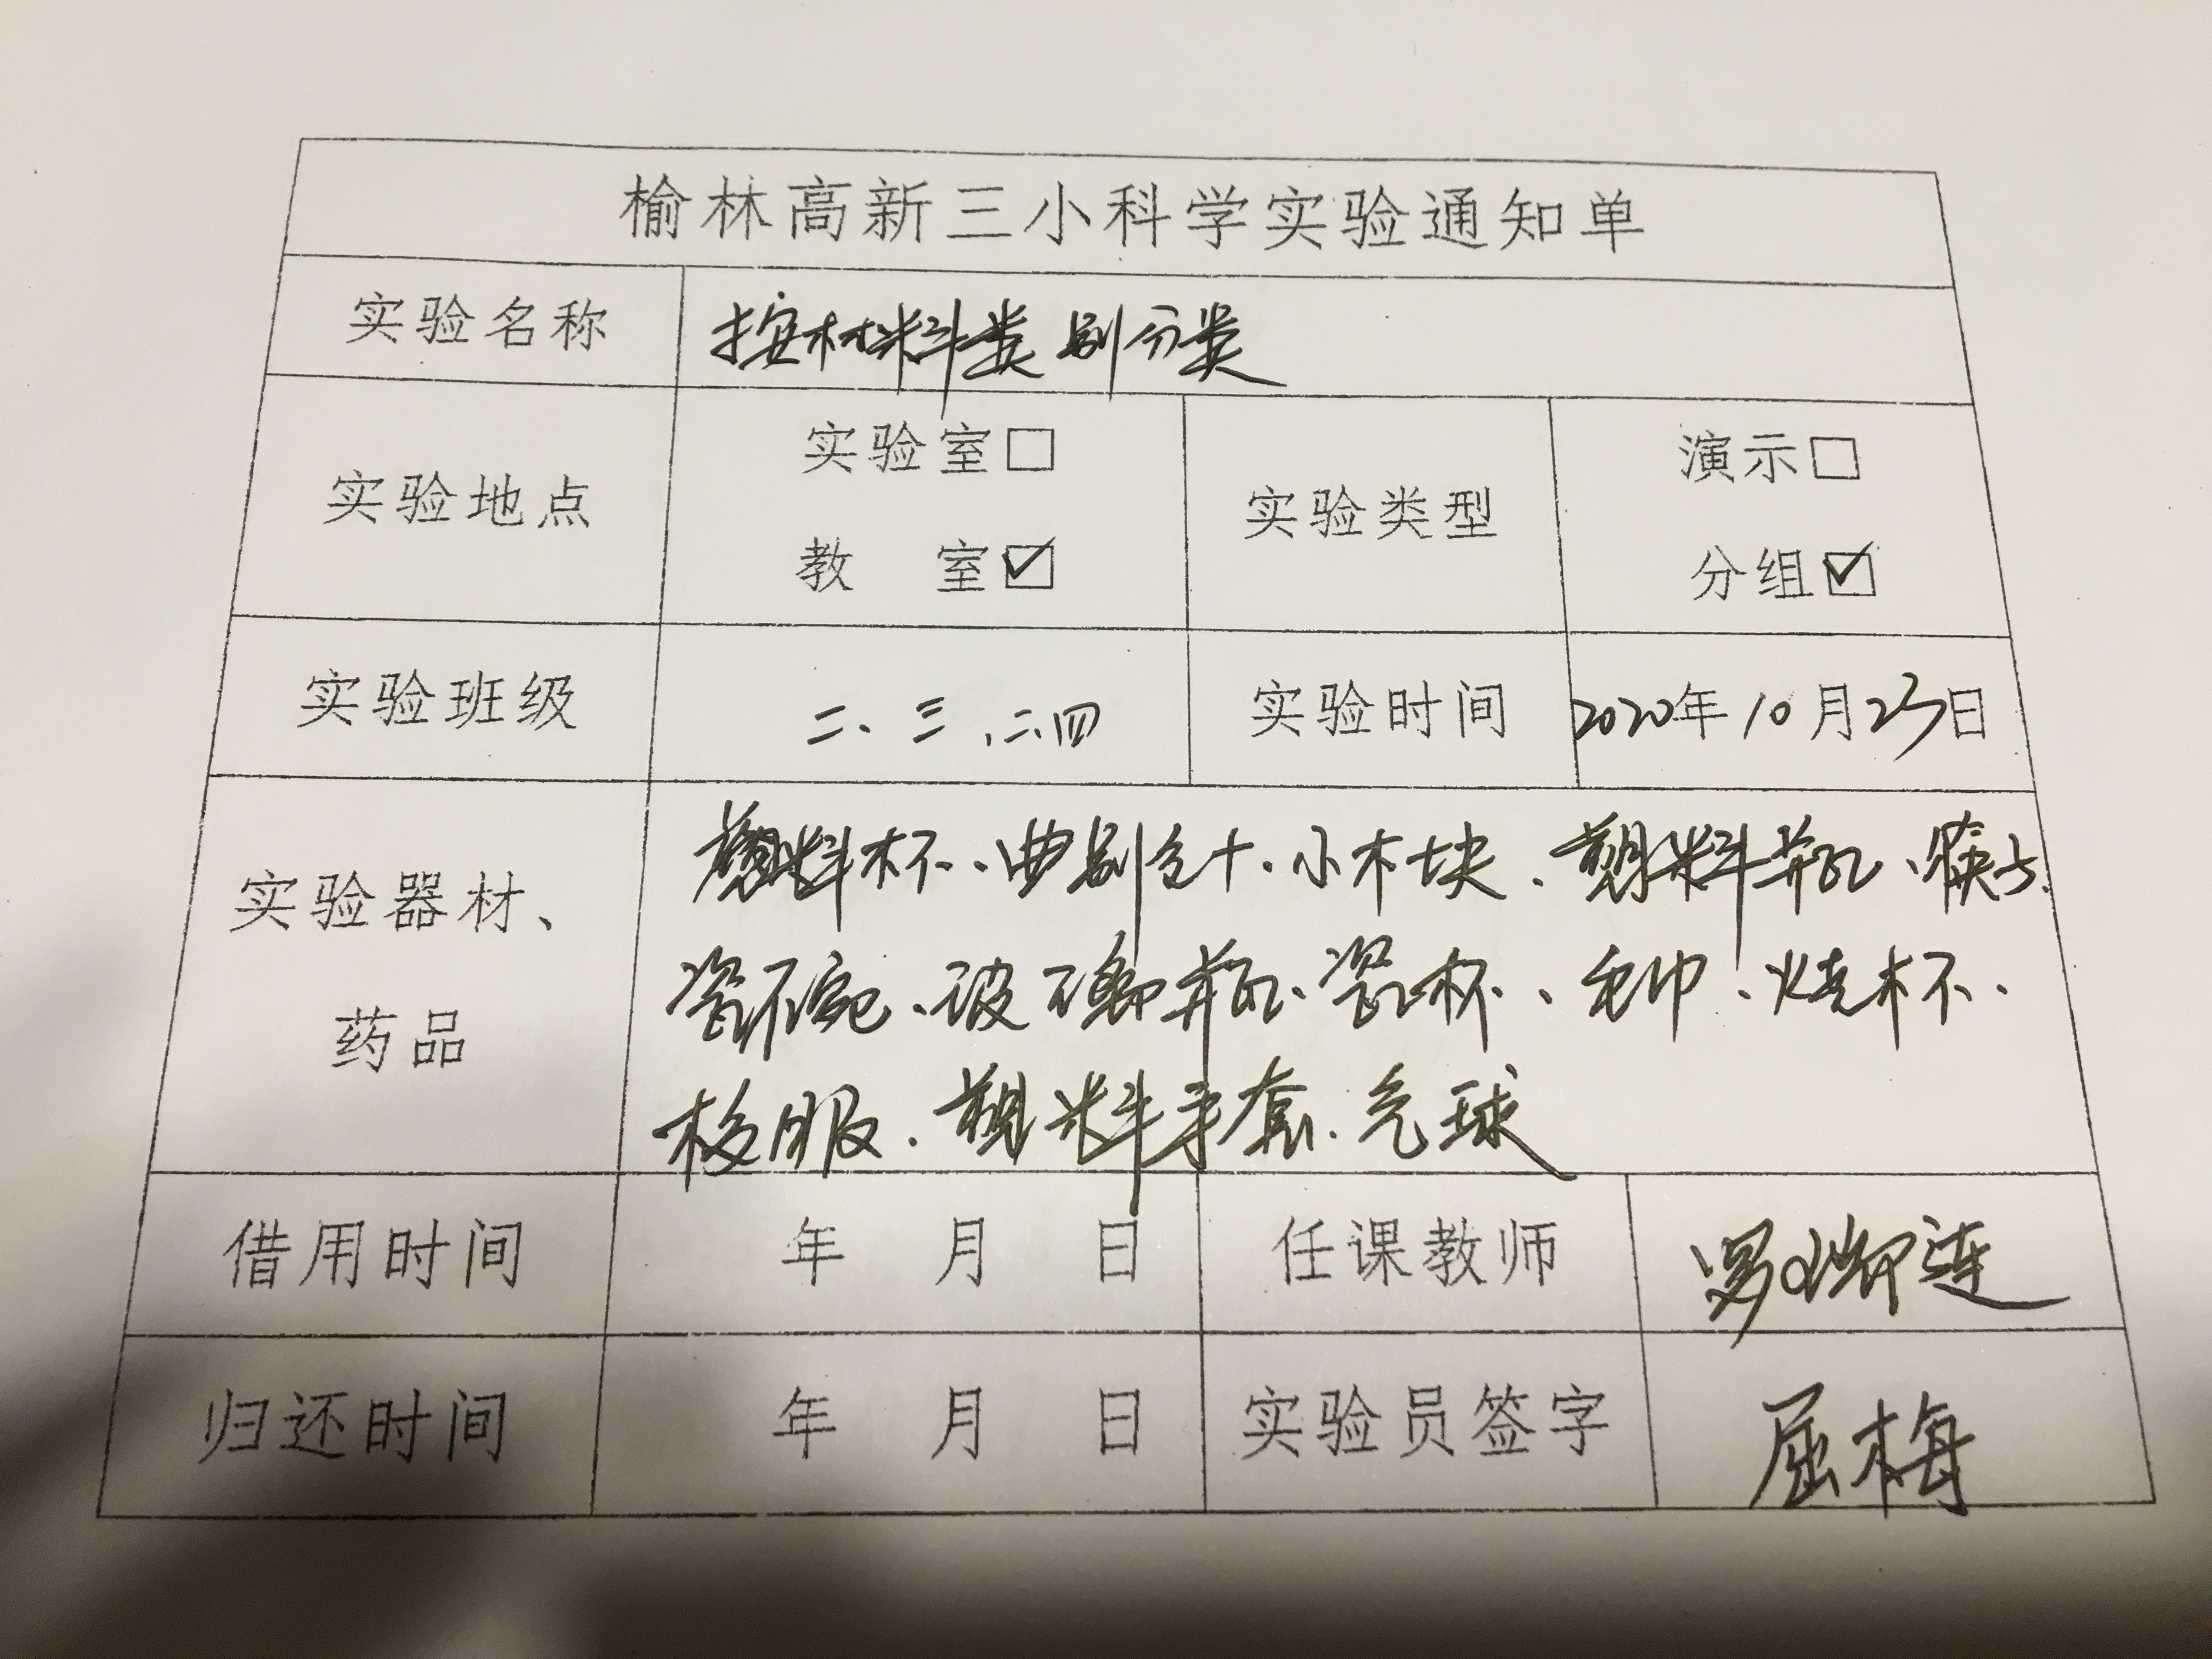 榆林高新三小科学实验通知单
实验名称 按材料类别分类
实验地点 实验室□ 教 室☑ 实验类型 演示□ 分组☑
实验班级 二、三、二、四 实验时间 2020年10月23日
实验器材、药品 塑料杯、曲别针、小木块、塑料瓶、筷子、
瓷碗、玻璃瓶、瓷杯、毛巾、烧杯、
校服、塑料手套、气球
借用时间 年 月 日 任课教师
归还时间 年 月 日 实验员签字 屈梅